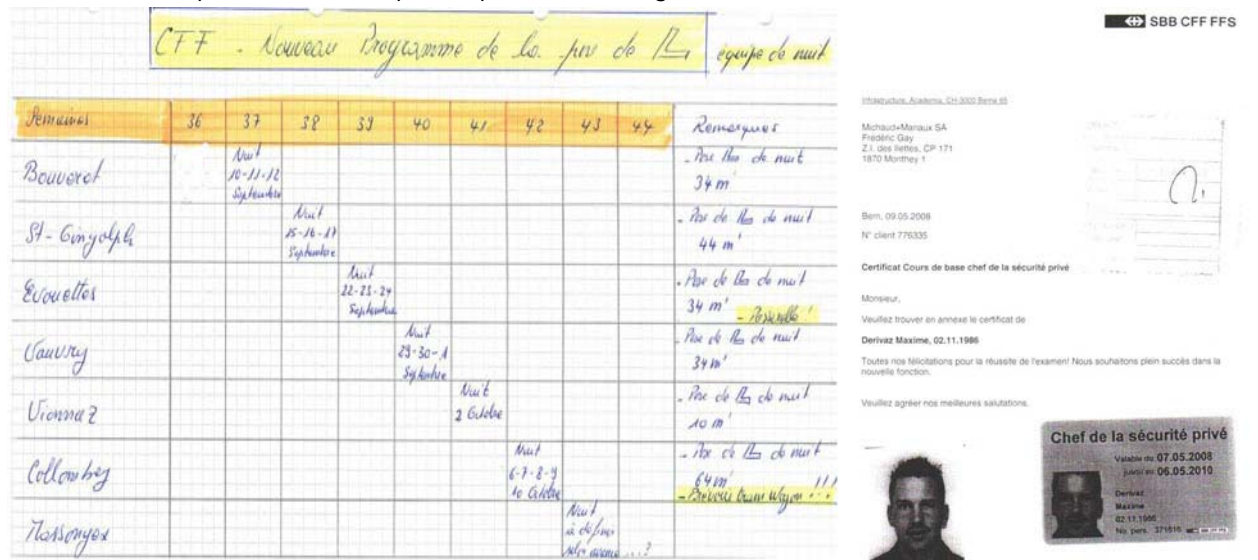 CFF - Nouveau Programme de la pose de
équipe de nuit
Semaines 36 37 38 39 40 41 42 43 44 Remarques
Bouveret
Nuit
10-11-12
Septembre
- Pose de nuit
34 m'
St-Gingolph
Nuit
15-16-17
Septembre
- Pose de de nuit
44 m'
Evouettes
Nuit
22-23-24
Septembre
- Pose de de nuit
34 m' - Passerelle !
Vouvry
Nuit
29-30-1
Septembre
- Pose de de nuit
34 m'
Vionnaz
Nuit
2 Octobre
- Pose de de nuit
10 m'
Collombey
Nuit
6-7-8-9
10 Octobre
- Pose de de nuit
64 m' !!!
- Prévoir train Wagon ...
Massongex
Nuit
à définir
selon avance ...?
SBB CFF FFS
Infrastructure, Academia, CH-3000 Berne 65
Michaud+Mariaux SA
Frédéric Gay
Z.I. des Ilettes, CP 171
1870 Monthey 1
Bern, 09.05.2008
N° client 776335
Certificat Cours de base chef de la sécurité privé
Monsieur,
Veuillez trouver en annexe le certificat de
Derivaz Maxime, 02.11.1986
Toutes nos félicitations pour la réussite de l'examen! Nous souhaitons plein succès dans la
nouvelle fonction.
Veuillez agréer nos meilleures salutations.
Chef de la sécurité privé
Valable du 07.05.2008
jusqu'au 06.05.2010
Derivaz
Maxime
02.11.1986
No. pers. 371616